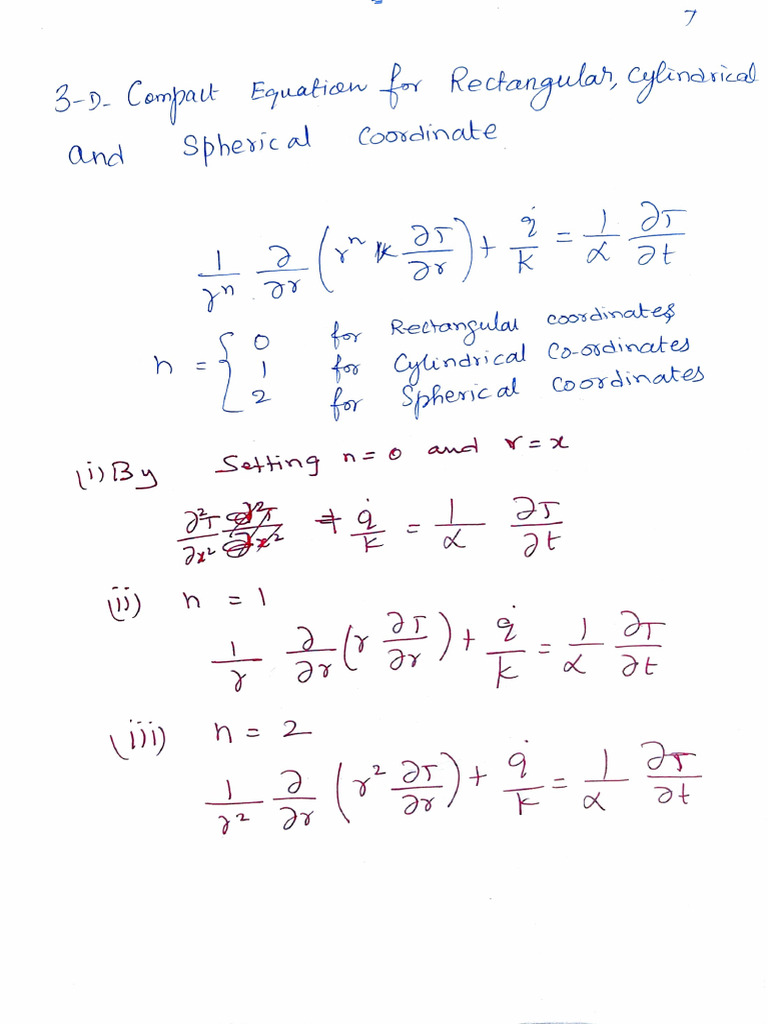 7
3-D- Compact Equation for Rectangular, Cylindrical
and Spherical Coordinate
1/r^n ∂/∂r (r^n k ∂T/∂r) + q̇/k = 1/α ∂T/∂t
n = { 0 for Rectangular coordinates
1 for Cylindrical Co-ordinates
2 for Spherical Coordinates
(i) By Setting n=0 and r=x
∂²T/∂x² + q̇/k = 1/α ∂T/∂t
(ii) n = 1
1/r ∂/∂r (r ∂T/∂r) + q̇/k = 1/α ∂T/∂t
(iii) n = 2
1/r² ∂/∂r (r² ∂T/∂r) + q̇/k = 1/α ∂T/∂t